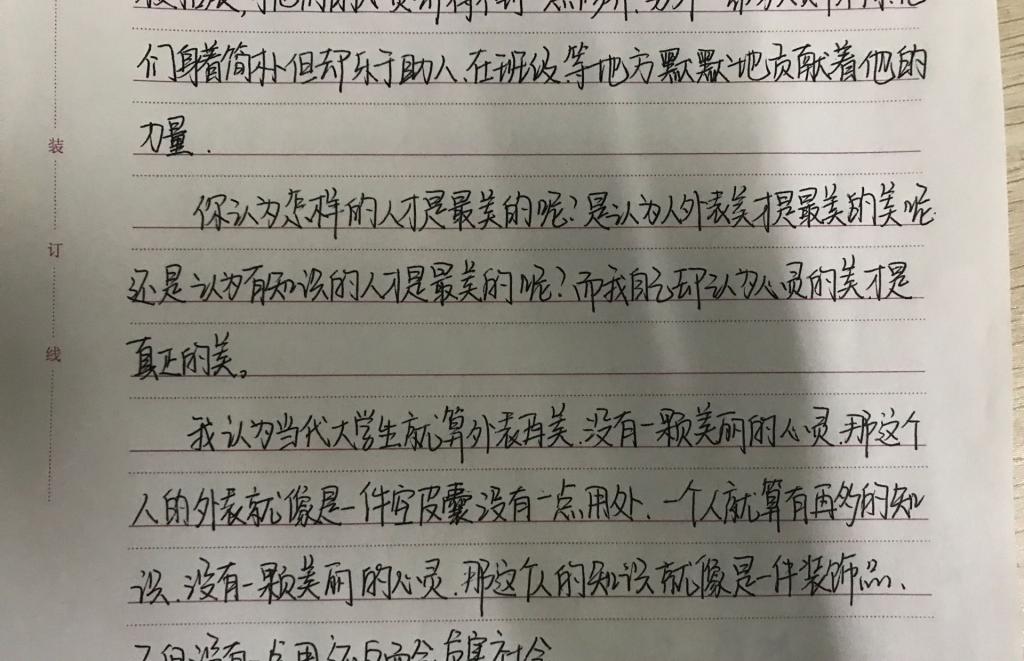 们身着简朴但却乐于助人、在班级等地方默默地贡献着他的
力量.
装
你认为怎样的人才是最美的呢?是认为人外表美才是最美的美呢
订
还是认为有知识的人才是最美的呢?而我自己却认为心灵的美才是
真正的美。
线
我认为当代大学生就算外表再美、没有一颗美丽的心灵.那这个
人的外表就像是一件空皮囊没有一点用处、一个人就算有再多的知
识、没有一颗美丽的心灵.那这个人的知识就像是一件装饰品、